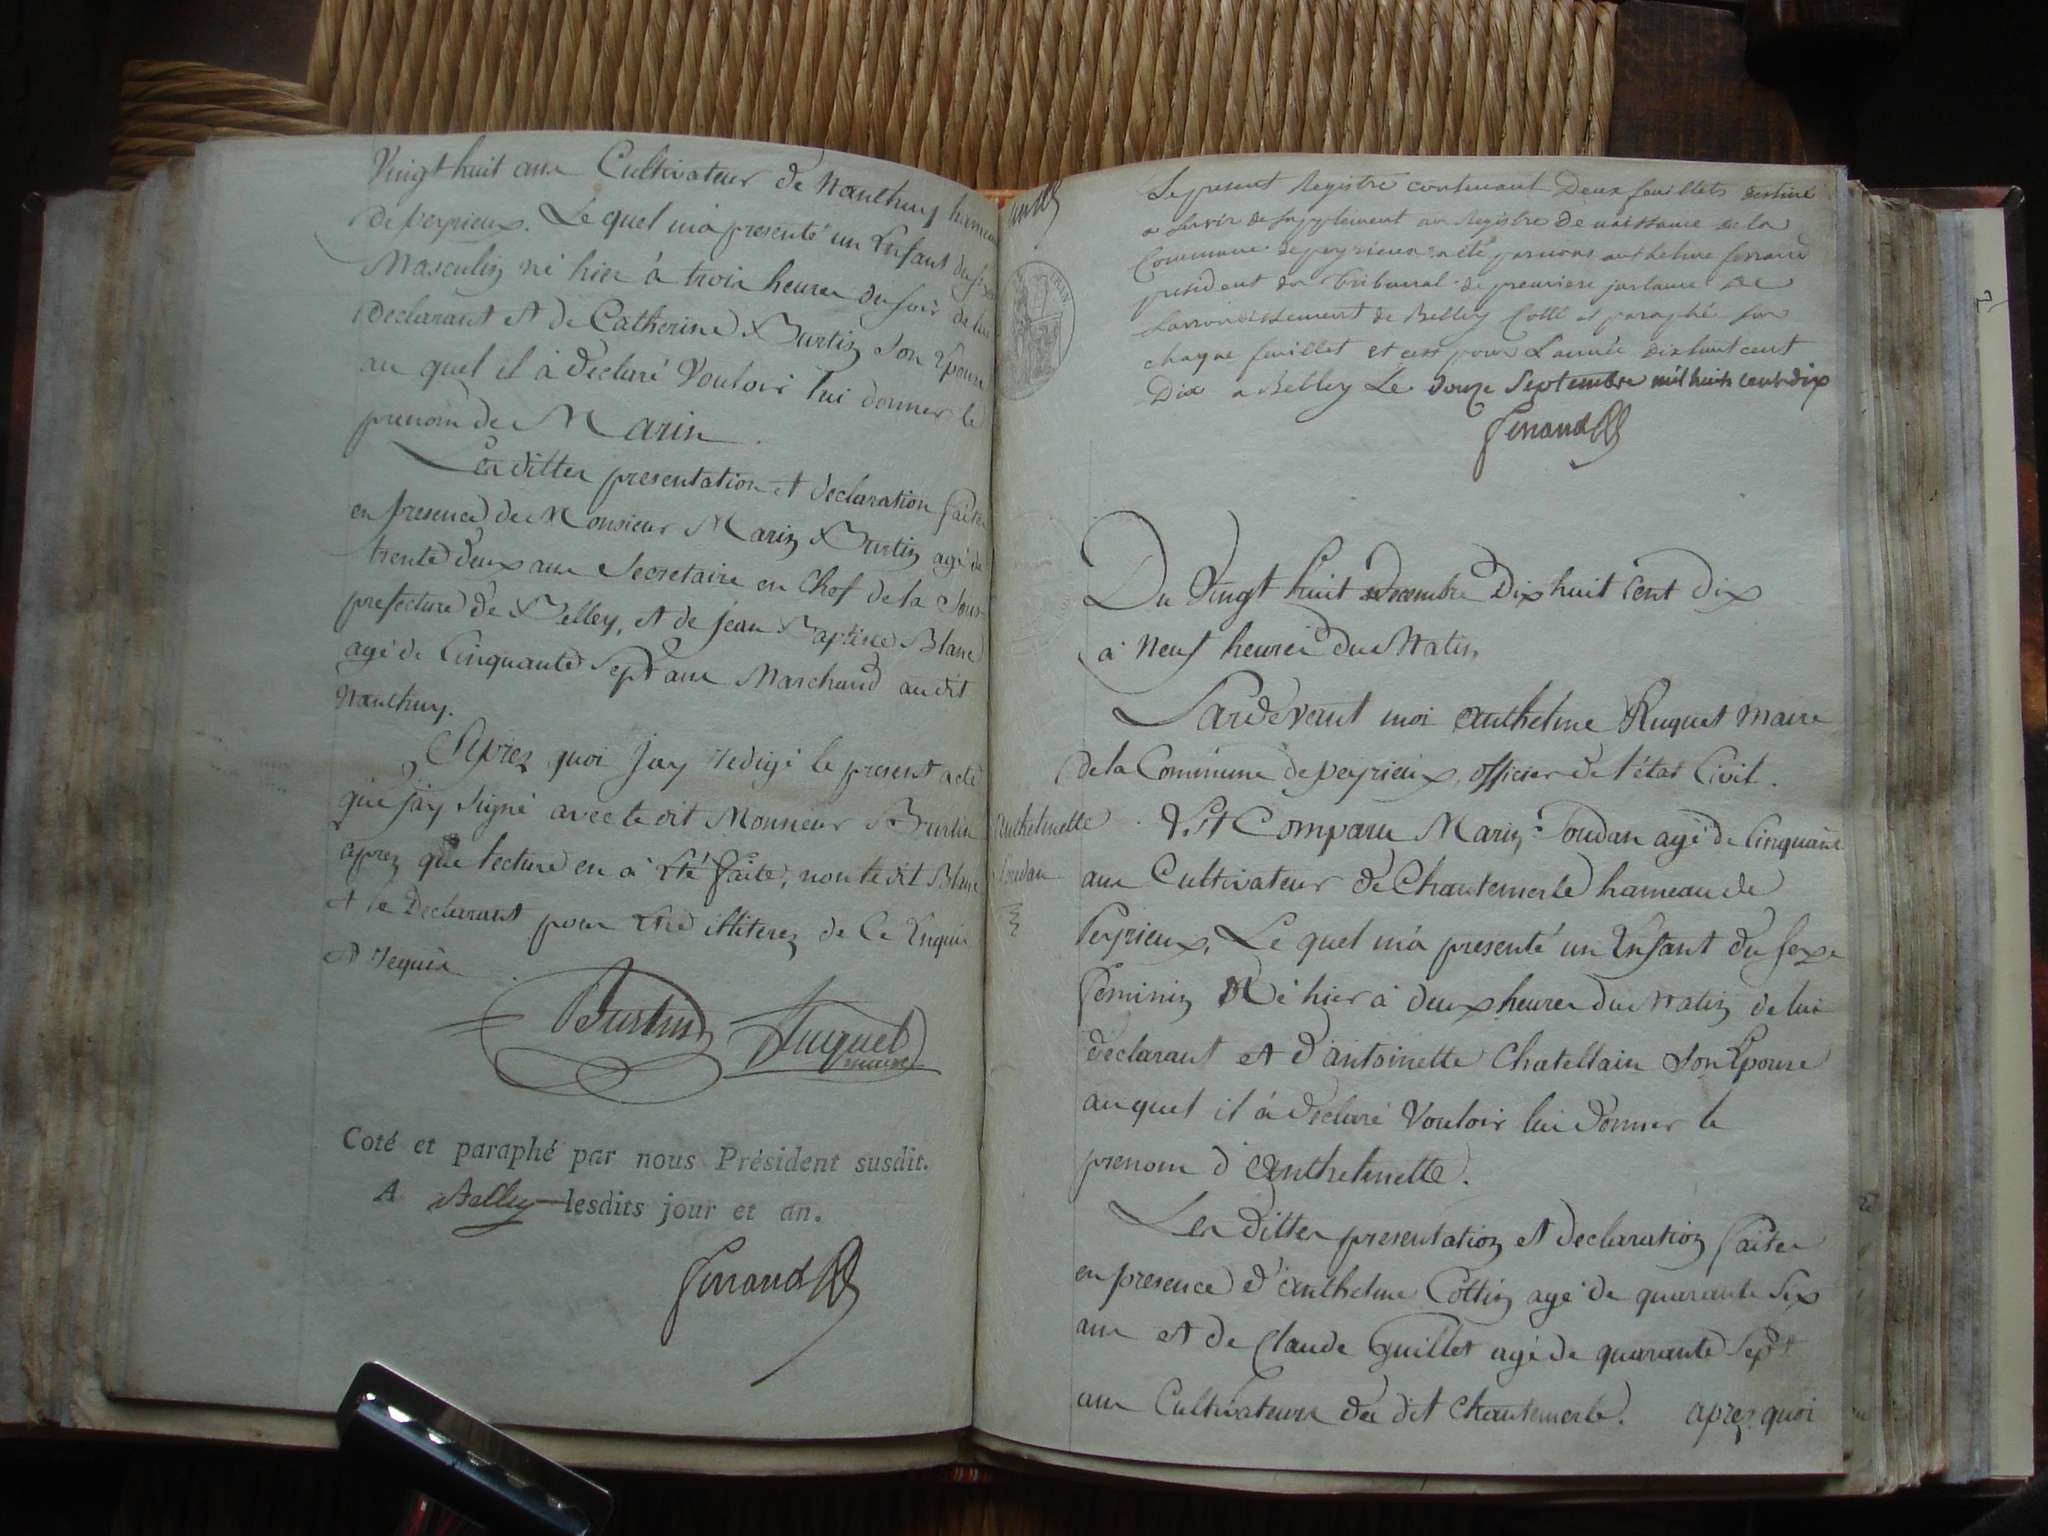 Vingt huit ans Cultivateur de Nanthuy hameau
de peyrieux. Le quel m'a presenté un Enfant du sexe
Masculin né hier à trois heures du soir de lui
déclarant et de Catherine Burtin son Epouse
au quel il à déclaré Vouloir lui donner le
prenom de Marin.
Les dittes presentation et déclaration faites
en presence de Monsieur Marin Burtin agé de
trente deux ans Secretaire en Chef de la Sous
prefecture de Belley, et de jean Baptiste Blanc
agé de Cinquante Sept ans Marchand au dit
Nanthuy.
Après quoi j'ay redigé le present acte
que j'ay signé avec le dit Monsieur Burtin
aprez que lecture en à été faite, non le dit Blanc
et le Declarant pour être illiterez de Ce Enquis
et requis
Burtin Ruquet
maire
Coté et paraphé par nous Président susdit.
A Belley lesdits jour et an.
Ferrand
Le present Registre contenant Deux feuillets destiné
a servir de supplement au Registre De naissance de la
Commune de peyrieux a été par nous anthelme ferrand
president du tribunal de premiere instance de
Larrondissement de Belley Cotté et paraphé sur
chaque feuillet et ce pour L'année dix huit cent
Dix a Belley Le douze Septembre mil huit cent dix
Ferrand
Du Vingt huit Décembre Dix huit Cent dix
à Neuf heures du Matin
Pardevant moi anthelme Ruquet maire
de la Commune de peyrieux, officier de l'état Civil.
Anthelmette
Goudan
Est Comparu Marin Goudan agé de Cinquante
ans Cultivateur de Chantemerle hameau de
Peyrieux, Le quel m'a presenté un Enfant du sexe
feminin Né hier à deux heures du Matin de lui
déclarant et d'antoinette Chatellain Son Epouse
au quel il à déclaré Vouloir lui donner le
prenom d'anthelmette.
Les dittes presentation et declaration faites
en presence d'anthelme Cottin agé de quarante Six
ans et de Claude Guillet agé de quarante Sept
ans Cultivateurs du dit Chantemerle. aprez quoi